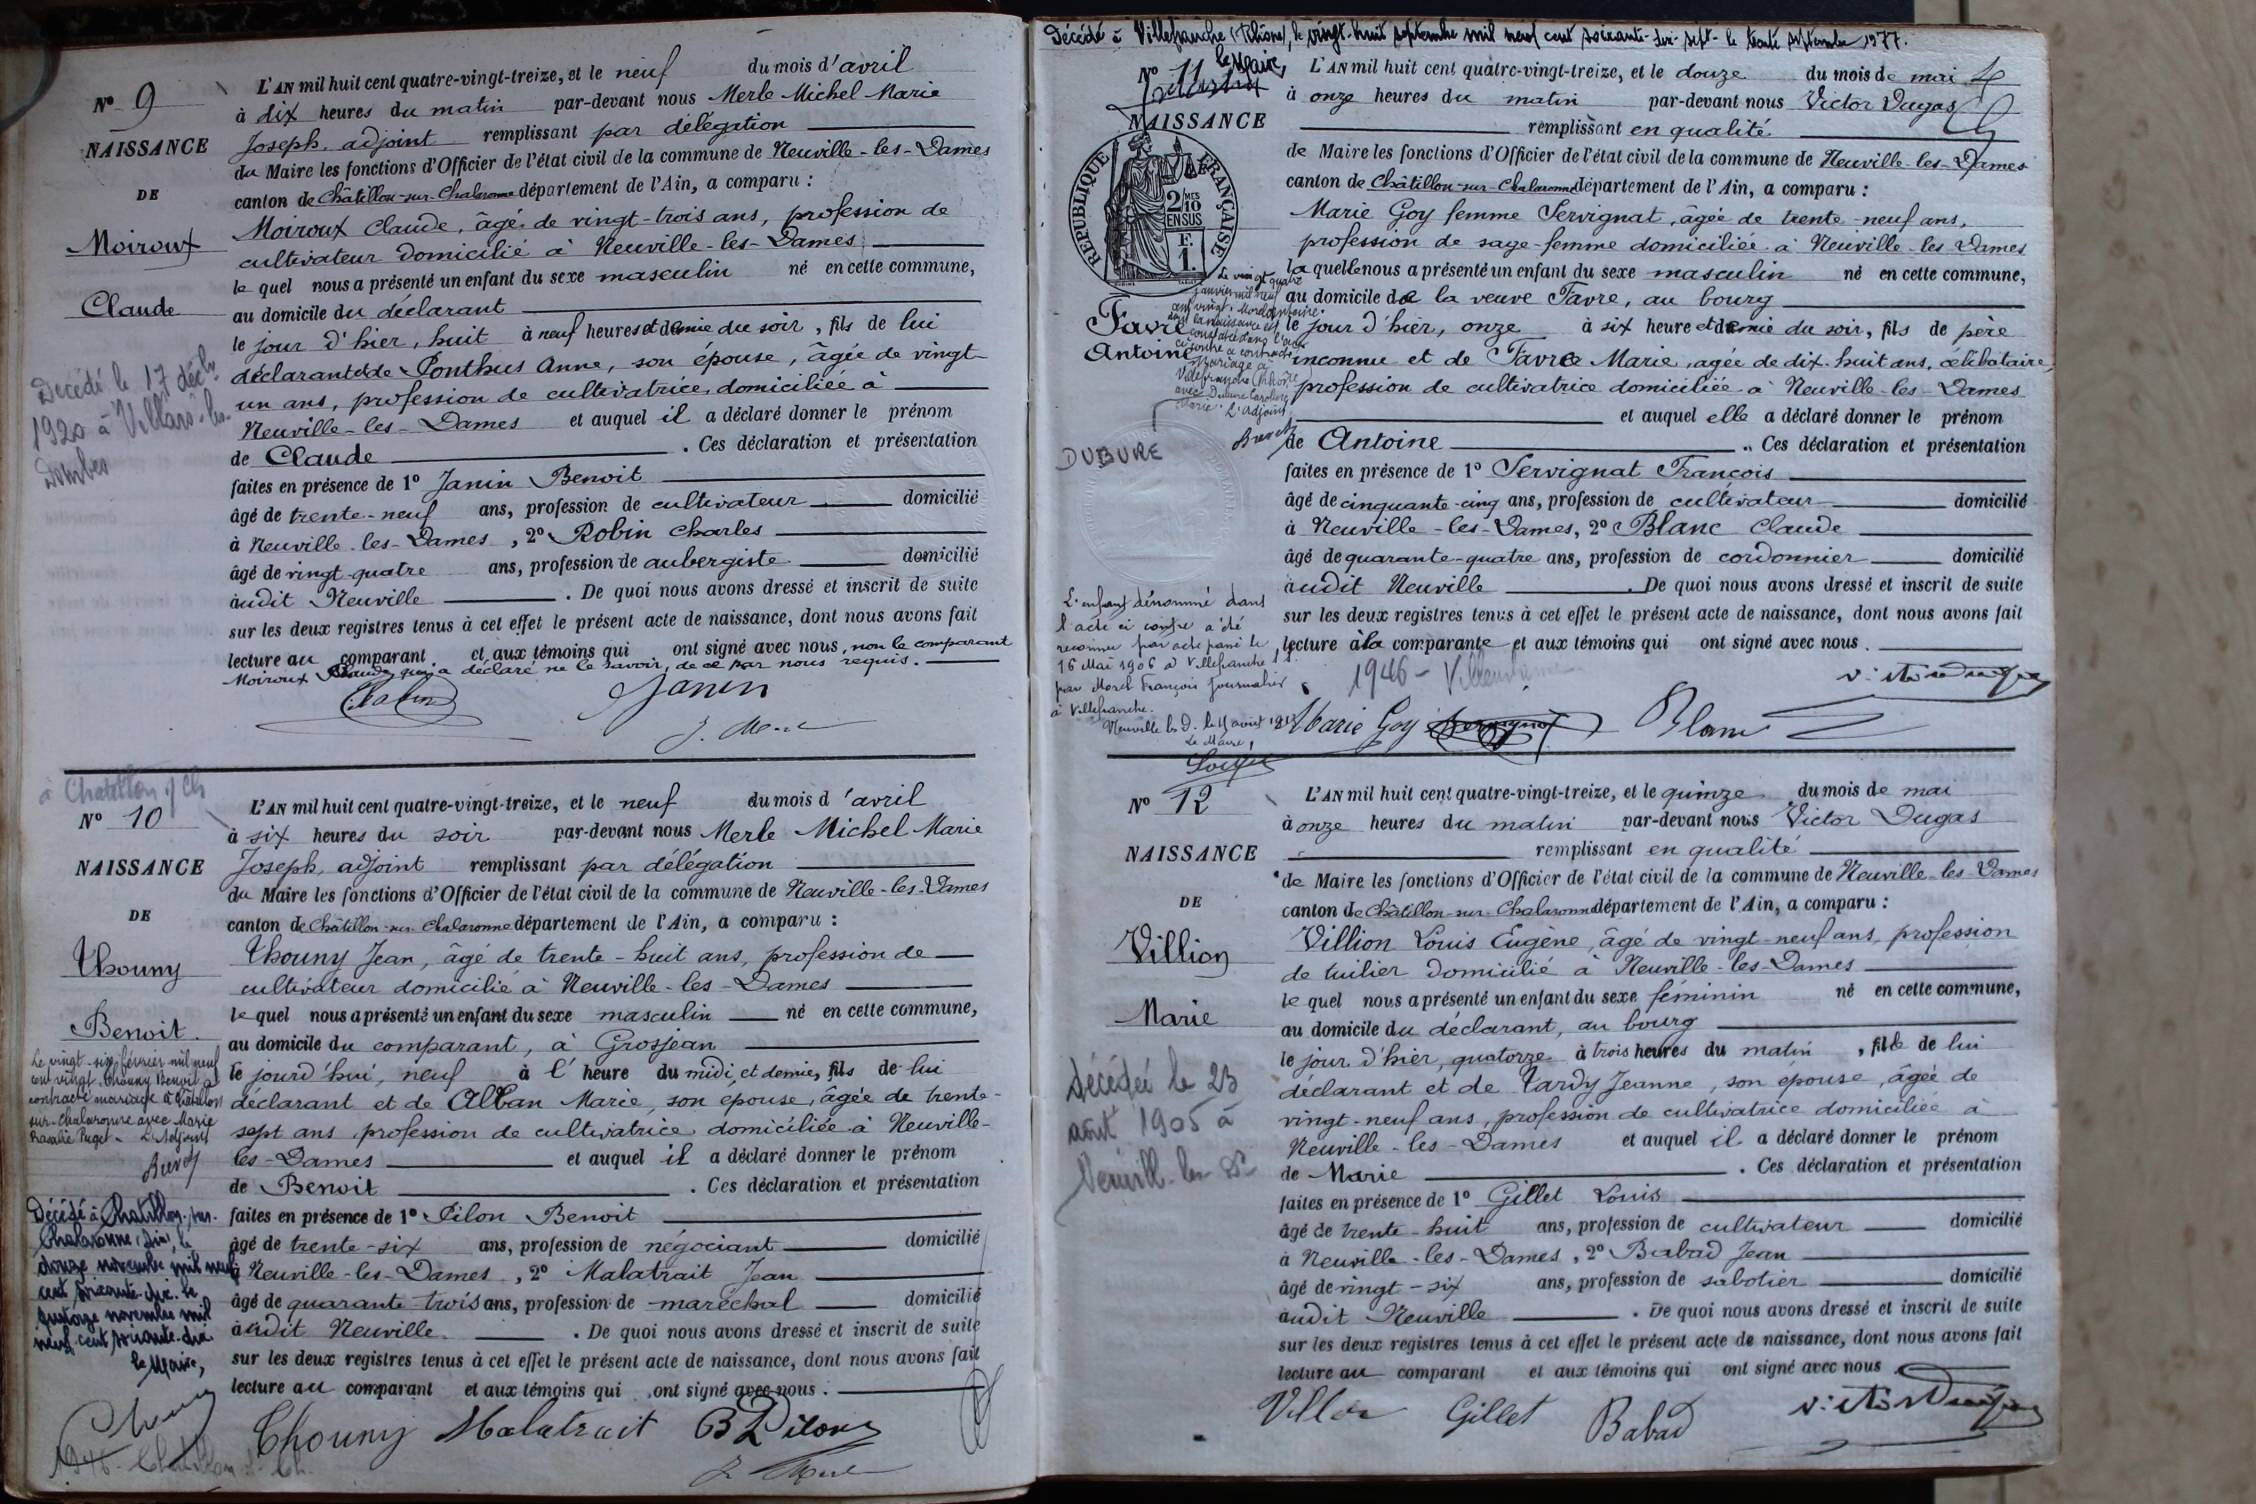 Nº 9
NAISSANCE
DE
Moiroux
Claude
Décédé le 17 décbr
1920 à Villars-les-
Dombes
L'AN mil huit cent quatre-vingt-treize, et le neuf du mois d'avril
à dix heures du matin par-devant nous Merle Michel Marie
Joseph, adjoint remplissant par délégation
du Maire les fonctions d'Officier de l'état civil de la commune de Neuville-les-Dames
canton de Châtillon-sur-Chalaronne département de l'Ain, a comparu :
Moiroux Claude, âgé de vingt-trois ans, profession de
cultivateur domicilié à Neuville-les-Dames
le quel nous a présenté un enfant du sexe masculin né en cette commune,
au domicile du déclarant
le jour d'hier, huit à neuf heures et demie du soir, fils de lui
déclarant et de Ponthus Anne, son épouse, âgée de vingt-
un ans, profession de cultivatrice, domiciliée à
Neuville-les-Dames et auquel il a déclaré donner le prénom
de Claude . Ces déclaration et présentation
faites en présence de 1º Janin Benoit
âgé de trente-neuf ans, profession de cultivateur domicilié
à Neuville-les-Dames, 2º Robin Charles
âgé de vingt-quatre ans, profession de aubergiste domicilié
audit Neuville . De quoi nous avons dressé et inscrit de suite
sur les deux registres tenus à cet effet le présent acte de naissance, dont nous avons fait
lecture au comparant et aux témoins qui ont signé avec nous, non le comparant
Moiroux Claude, qui a déclaré ne le savoir, de ce par nous requis.
Janin
à Chatillon s/ Ch
Nº 10
NAISSANCE
DE
Thouny
Benoit.
Le vingt-six février mil neuf
cent vingt. Thouny Benoit a
contracté mariage à Châtillon
sur-Chalaronne avec Marie
Puget. L'Adjoint
Décédé à Chatillon-sur-
Chalaronne (Ain), le
douze novembre mil neuf
cent soixante-dix. le
quatorze novembre mil
neuf cent soixante-dix.
le Maire,
L'AN mil huit cent quatre-vingt-treize, et le neuf du mois d'avril
à six heures du soir par-devant nous Merle Michel Marie
Joseph, adjoint remplissant par délégation
du Maire les fonctions d'Officier de l'état civil de la commune de Neuville-les-Dames
canton de Châtillon-sur-Chalaronne département de l'Ain, a comparu :
Thouny Jean, âgé de trente-huit ans, profession de
cultivateur domicilié à Neuville-les-Dames
le quel nous a présenté un enfant du sexe masculin né en cette commune,
au domicile du comparant, à Grosjean
le jourd'hui, neuf à l'heure du midi, et demie, fils de lui
déclarant et de Alban Marie, son épouse, âgée de trente-
sept ans profession de cultivatrice domiciliée à Neuville-
les-Dames et auquel il a déclaré donner le prénom
de Benoit . Ces déclaration et présentation
faites en présence de 1º Pilon Benoit
âgé de trente-six ans, profession de négociant domicilié
à Neuville-les-Dames, 2º Malatrait Jean
âgé de quarante trois ans, profession de maréchal domicilié
audit Neuville . De quoi nous avons dressé et inscrit de suite
sur les deux registres tenus à cet effet le présent acte de naissance, dont nous avons fait
lecture au comparant et aux témoins qui ont signé avec nous.
Thouny Malatrait B Pilon
Décédé à Villefranche (Rhône), le vingt-huit septembre mil neuf cent soixante-dix-sept - le trente septembre 1977.
le Maire,
Nº 11
NAISSANCE
RÉPUBLIQUE FRANÇAISE
2 MES
10
EN SUS
F.
1.
Favre
Antoine
Le vingt quatre
janvier mil neuf
cent vingt. Morel Antoine
dont la naissance est
constatée dans l'acte
ci contre a contracté
mariage à
Villefranche (Rhône)
avec Dubure Caroline
Marie. L'adjoint
DUBURE
L'enfant dénommé dans
l'acte ci contre a été
reconnu par acte passé le
16 Mai 1906 à Villefranche
par Morel François journalier
à Villefranche.
Le Maire,
L'AN mil huit cent quatre-vingt-treize, et le douze du mois de mai
à onze heures du matin par-devant nous Victor Dugas
remplissant en qualité
de Maire les fonctions d'Officier de l'état civil de la commune de Neuville-les-Dames
canton de Châtillon-sur-Chalaronne département de l'Ain, a comparu :
Marie Goy femme Servignat, âgée de trente-neuf ans,
profession de sage-femme domiciliée à Neuville-les-Dames
la quelle nous a présenté un enfant du sexe masculin né en cette commune,
au domicile de la veuve Favre, au bourg
le jour d'hier, onze à six heure et demie du soir, fils de père
inconnu et de Favre Marie, agée de dix-huit ans, célibataire,
profession de cultivatrice domiciliée à Neuville-les-Dames
et auquel elle a déclaré donner le prénom
de Antoine . Ces déclaration et présentation
faites en présence de 1º Servignat François
âgé de cinquante-cinq ans, profession de cultivateur domicilié
à Neuville-les-Dames, 2º Blanc Claude
âgé de quarante-quatre ans, profession de cordonnier domicilié
audit Neuville . De quoi nous avons dressé et inscrit de suite
sur les deux registres tenus à cet effet le présent acte de naissance, dont nous avons fait
lecture à la comparante et aux témoins qui ont signé avec nous.
1946 -
Marie Goy Servignat Blanc
Nº 12
NAISSANCE
DE
Villion
Marie
Décédée le 23
août 1905 à
Neuville-les-Des
L'AN mil huit cent quatre-vingt-treize, et le quinze du mois de mai
à onze heures du matin par-devant nous Victor Dugas
remplissant en qualité
de Maire les fonctions d'Officier de l'état civil de la commune de Neuville-les-Dames
canton de Châtillon-sur-Chalaronne département de l'Ain, a comparu :
Villion Louis Eugène, âgé de vingt-neuf ans, profession
de tuilier domicilié à Neuville-les-Dames
le quel nous a présenté un enfant du sexe féminin né en cette commune,
au domicile du déclarant, au bourg
le jour d'hier, quatorze à trois heures du matin, fille de lui
déclarant et de Tardy Jeanne, son épouse, âgée de
vingt-neuf ans, profession de cultivatrice domiciliée à
Neuville-les-Dames et auquel il a déclaré donner le prénom
de Marie . Ces déclaration et présentation
faites en présence de 1º Gillet Louis
âgé de trente-huit ans, profession de cultivateur domicilié
à Neuville-les-Dames, 2º Babad Jean
âgé de vingt-six ans, profession de sabotier domicilié
audit Neuville . De quoi nous avons dressé et inscrit de suite
sur les deux registres tenus à cet effet le présent acte de naissance, dont nous avons fait
lecture au comparant et aux témoins qui ont signé avec nous
Villion Gillet Babad Victor Dugas